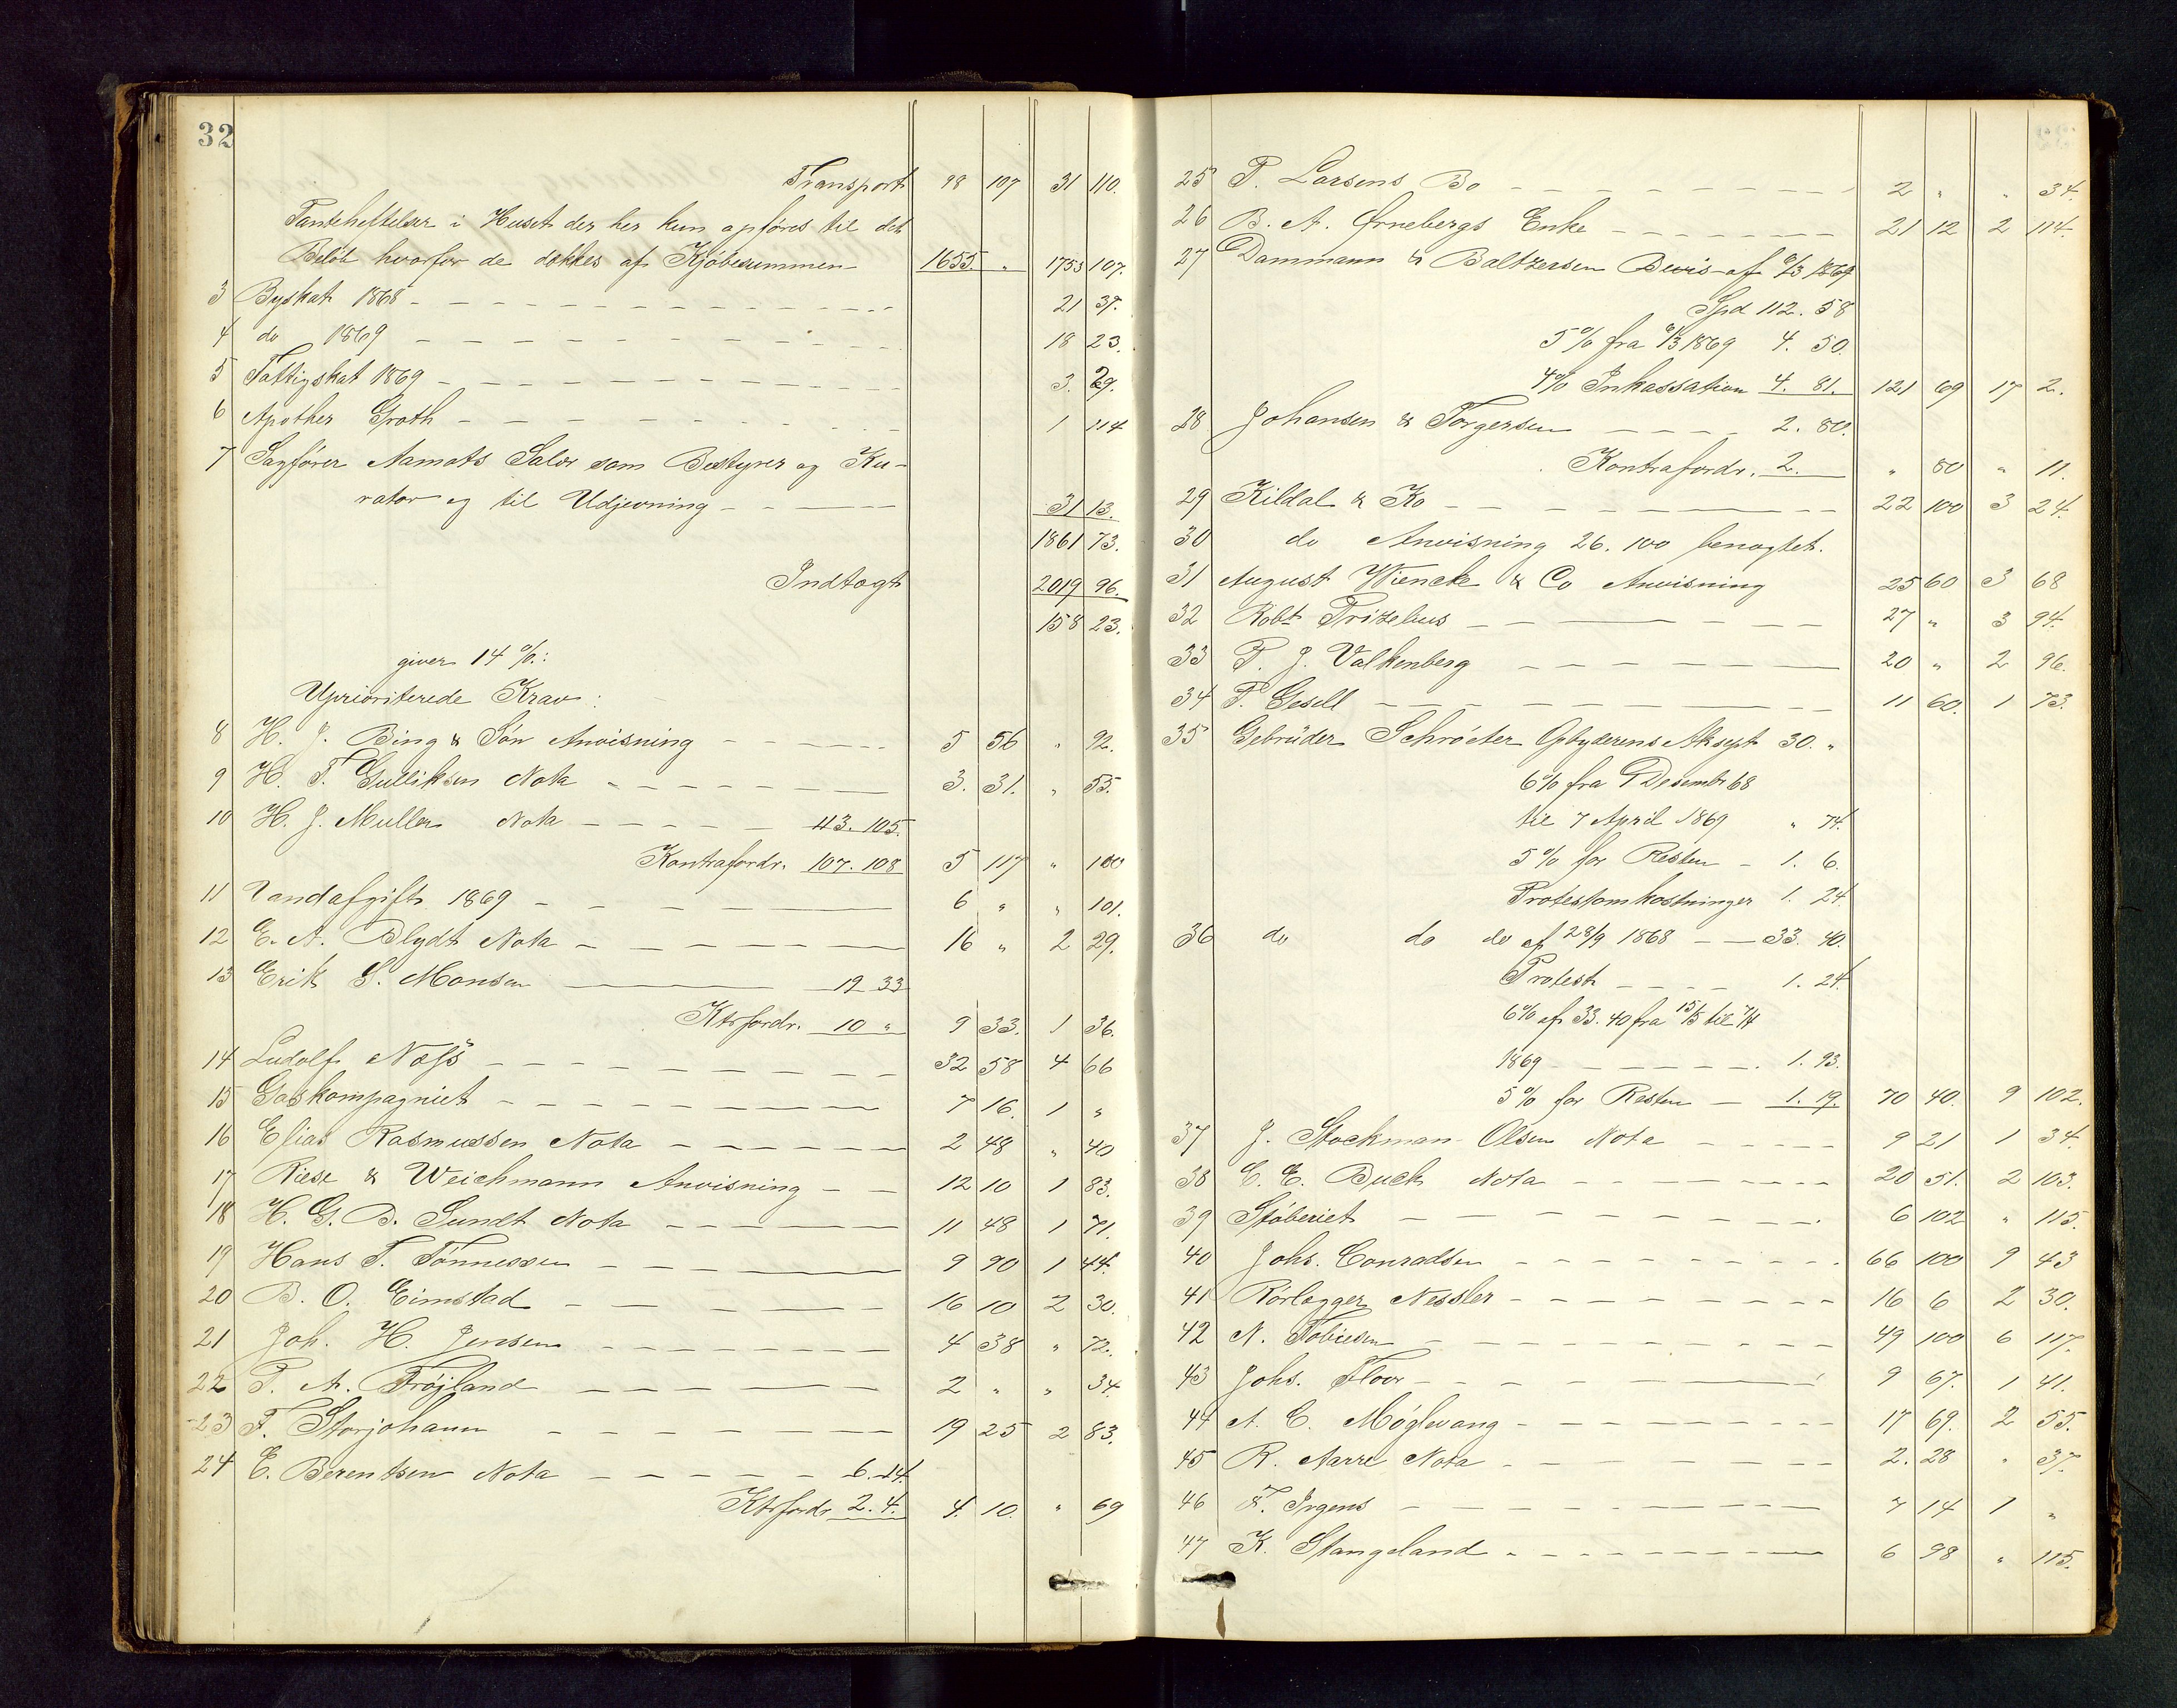 32
Transport 98 107 31 110.
Pantehæftelser i Huset der her kun opføres til det
Beløb hvorfor de dækkes af Kjøbesummen 1655. " 1753 107.
3 Byskat 1868 21 37.
4 do 1869 18 23.
5 Fattigskat 1869 3. 29.
6 Apother Groth 1 114
7 Sagfører Aamots Salær som Bestyrer og Ku-
rator og til Udjevning 31 13.
1861 73.
Indtægt 2019 96.
158 23.
giver 14 %:
Uprioriterede Krav:
8 H. J. Bing & Søn Anvisning 5 56 " 92.
9 H. T. Gulliksen Nota 3. 31. " 55.
10 H. J. Muller Nota 113. 105.
Kontrafordr. 107. 108 5 117 " 100
11 Vandafgift 1869 6 " " 101.
12 E. A. Blydt Nota 16 " 2 29.
13 Erik S. Monsen 19 33
Ktrfordr. 10 " 9 33. 1 36.
14 Ludolf Næss 32 58 4 66
15 Gaskompagniet 7 16. 1 "
16 Elias Rasmussen Nota 2 48 " 40
17 Riese & Weichmann Anvisning 12 10 1 83.
18 H. G. B. Sundt Nota 11 48 1 71.
19 Hans T. Tønnessen 9 90 1 44.
20 B. O. Eimstad 16 10 2 30.
21 Joh. H. Jensen 4 38 " 72.
22 T. A. Frøjland 2 " " 34.
23 F. Storjohann 19 25 2 83.
24 E. Berentsen Nota 6. 14.
Ktrfordr. 2. 4. 4. 10. " 69
25 P. Larsens Bo 2 " " 34.
26 B. A. Ørnebergs Enke 21 12 2 114.
27 Dammann & Baltzersen Bevis af 6/3 1869
Spd 112. 58
5% fra 6/3 1869 4. 50.
4% Inkassation 4. 81. 121 69 17 2.
28 Johansen & Torgersen 2. 80.
Kontrafordr. 2. " 80 " 11.
29 Kildal & Ko 22 100 3 24.
30 do Anvisning 26. 100 benægtet.
31 August Wiencke & Co Anvisning 25 60 3 68
32 Robt Trizelius 27 " 3 94.
33 P. J. Valkenberg 20 " 2 96.
34 P. Gesell 11 60. 1 73.
35 Gebrüder Schröeter Opbyderens Aksept 30. "
6% fra 9 Desembr 68
til 7 April 1869 " 74.
5% for Resten 1. 6.
Protestomkostninger 1. 24
36 do do do af 28/9 1868 33. 40.
Protest 1. 24.
6% af 33. 40 fra 15/5 til 7/4
1869 1. 93.
5% for Resten 1. 19. 70 40. 9 102.
37 J. Stockman Olsen Nota 9 21 1 34.
38 C. E. Buch Nota 20 51. 2 103.
39 Støberiet 6 102 " 115.
40 Johs. Conradsen 66 100 9 43
41 Rørlægger Nessler 16 6 2 30.
42 N. Tobiesen 49 100 6 117.
43 Johs. Floor 9 67. 1 41.
44 A. C. Møglevang 17 69. 2 55.
45 R. Aarre Nota 2. 28 " 37.
46 F. Irgens 7 14 1 "
47 K. Stangeland 6 98 " 115.